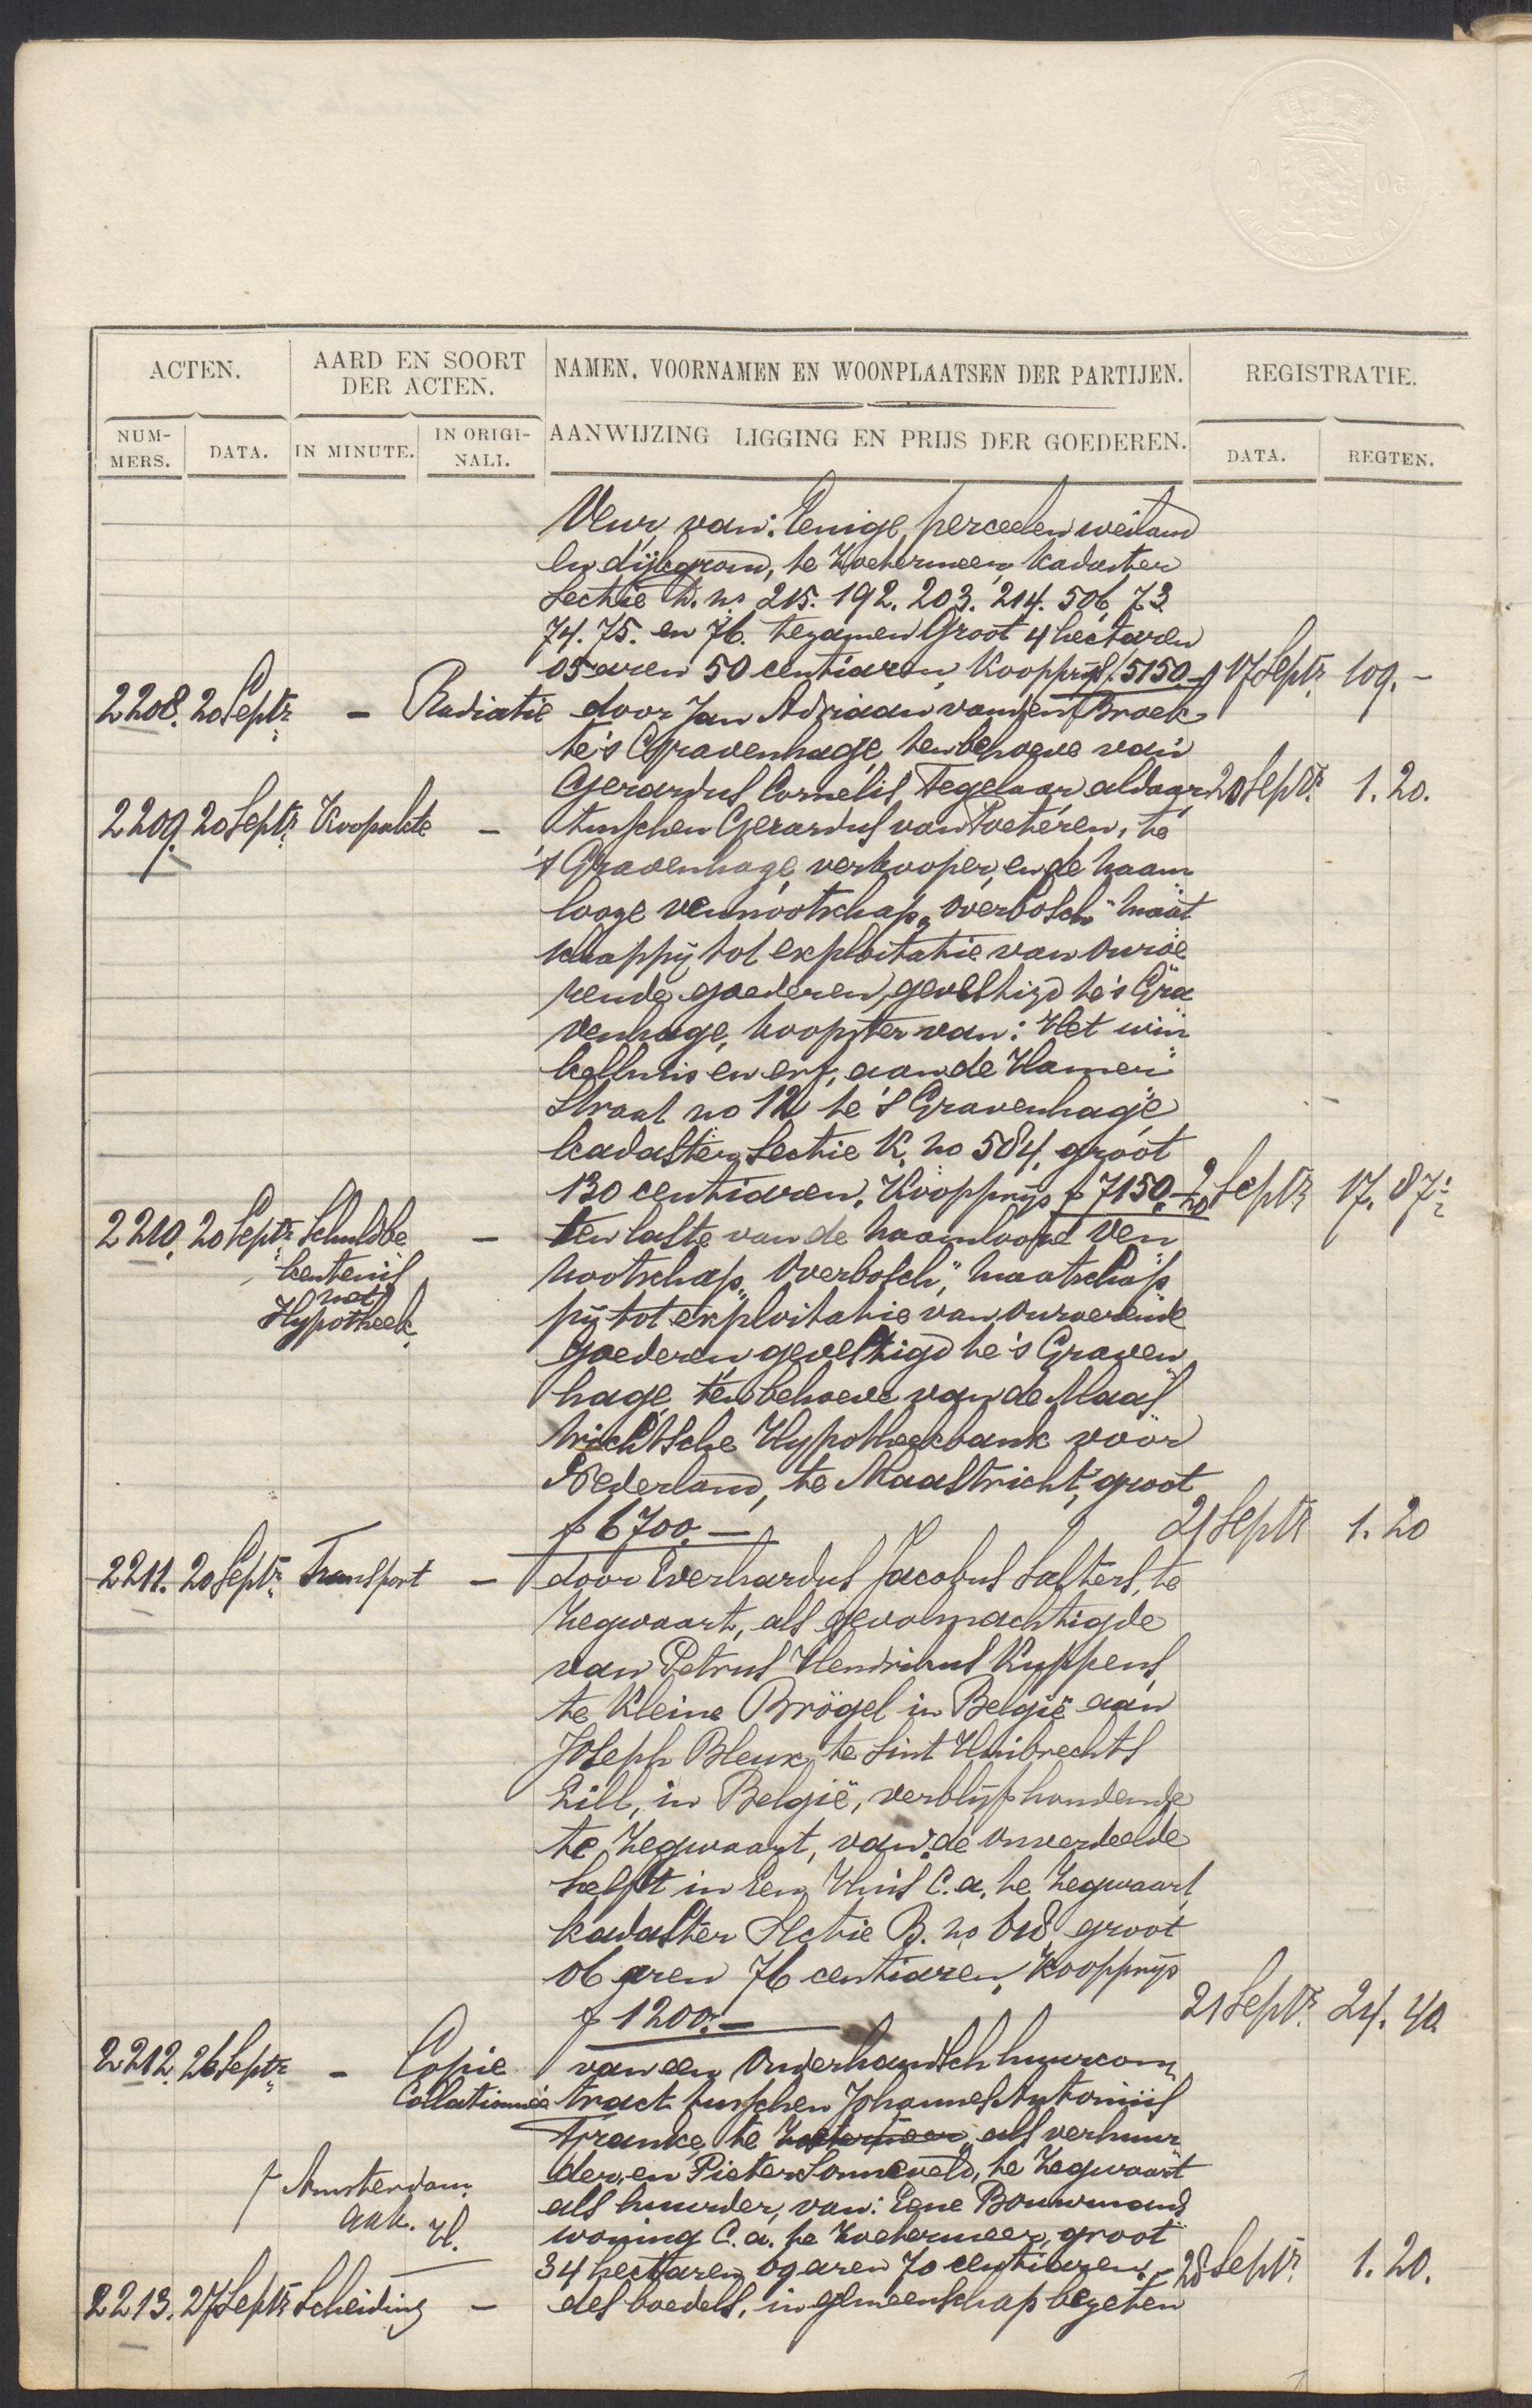 ACTEN.
AARD EN SOORT DER ACTEN.
NAMEN, VOORNAMEN EN WOONPLAATSEN DER PARTIJEN.
REGISTRATIE.
NUM-
MERS.
DATA.
IN MINUTE.
IN ORIGI-
NALI.
AANWIJZING LIGGING EN PRIJS DER GOEDEREN.
DATA.
REGTEN.
Veur, van: Eenige perceelen weiland
en dijkgrond, te Zoetermeer, kadaster
Sectie D. no 215. 192. 203. 214. 506, 73.
74. 75. en 76. tezamen Groot 4 hectaren
05 aren 50 centiaren, Koopprijs f 5150.- 17 Septr. 109.-
2208. 20 Septr. - Radiatie door Jan Adriaan van den Broek
te 's Gravenhage ten behoeve van
Gerardus Cornelis Tegelaar aldaar 20 Septr. 1. 20.
2209. 20 Septr. Koopakte - tusschen Gerardus van Poeteren, te
's Gravenhage, verkooper, en de naam
looze vennootschap "Overbosch" maat
schappij tot exploitatie van onroe
rende goederen, gevestigd te 's Gra
venhage, koopster van: Het win
kelhuis en erf, aan de Hamer
straat no 12 te 's Gravenhage,
kadaster Sectie K. no 584, groot
130 centiaren, Koopprijs f 7150.- 20 Septr. 17. 87
2210. 20 Septr. Schuldbe - ten laste van de naamlooze Ven
kentenis
nootschap "Overbosch", maatschap
met
Hypotheek.
pij tot exploitatie van onroerende
goederen, gevestigd te 's Graven
hage, ten behoeve van de Maas
trichtsche Hypotheekbank voor
Nederland, te Maastricht, groot
f 6700.- 21 Septr. 1. 20
2211. 20 Septr. Transport - door Everhardus Jacobus Salters, te
Zegwaart, als gevolmachtigde
van Petrus Hendrikus Kuppens,
te Kleine Brögel in België aan
Joseph Bleux, te Sint Huibrechts
Lill, in België, verblijf houdende
te Zegwaart, van: de onverdeelde
helft in Een Huis C.a. te Zegwaart,
kadaster Sectie B. no 618, groot
06 aren 76 centiaren, Koopprijs
f 1200.- 21 Septr. 24. 40.
2212. 26 Septr. - Copie van een onderhandsch huurcon
Collationnée tract tusschen Johannes Antonius
Franke, te Zoetermeer, als verhuur
der, en Pieter Sonneveld, te Zegwaart
Amsterdam.
als huurder, van: Eene Bouwmans
woning C.a. te Zoetermeer, groot
34 hectaren 09 aren 70 centiaren. - 28 Septr. 1. 20.
2213. 27 Septr. Scheiding - des boedels, in gemeenschap bezeten